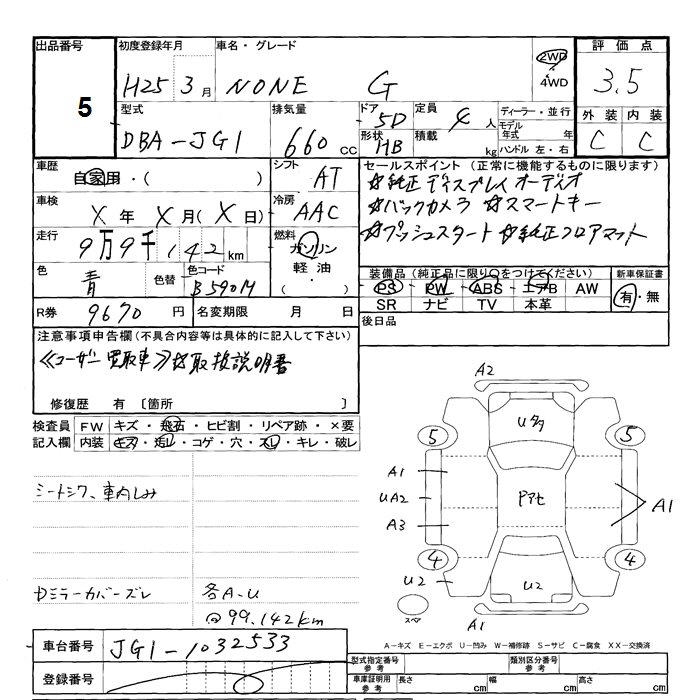 出品番号 初度登録年月 車名・グレード 2WD 4WD 評価点
5 H25 3月 NONE G 3.5
型式 排気量 ドア 定員 ディーラー・並行 外装 内装
DBA-JG1 660cc 5D 4人 モデル年式 年 C C
形状 HB 積載 kg ハンドル 左・右
車歴 自家用・( ) シフト AT セールスポイント (正常に機能するものに限ります)
☆純正ディスプレイオーディオ
車検 X年 X月(X日) 冷房 AAC ☆バックカメラ ☆スマートキー
走行 9万9千142km 燃料 ガソリン 軽油・( ) ☆プッシュスタート ☆純正フロアマット
色 青 色替 色コード B590M 装備品(純正品に限り○をつけてください) 新車保証書
PS PW ABS エアB AW 有・無
SR ナビ TV 本革
R券 9670円 名変期限 月 日 後日品
注意事項申告欄(不具合内容等は具体的に記入して下さい)
≪ユーザー買取車≫ ☆取扱説明書
修復歴 有〔箇所 〕
検査員 FW キズ・飛石・ヒビ割・リペア跡・×要
記入欄 内装 キズ・汚レ・コゲ・穴・スレ・キレ・破レ
シートシワ、車内しみ
Dミラーカバーズレ 各A.U
@99.142km
A2
U多
5 5
A1
UA2 Pアセ A1
A3
4 4
U2 U2
スペア A1
A-キズ E-エクボ U-凹み W-補修跡 S-サビ C-腐食 XX-交換済
車台番号 JG1-1032533
型式指定番号 参考 類別区分番号 参考
登録番号
車庫証明用 参考 長さ cm 幅 cm 高さ cm